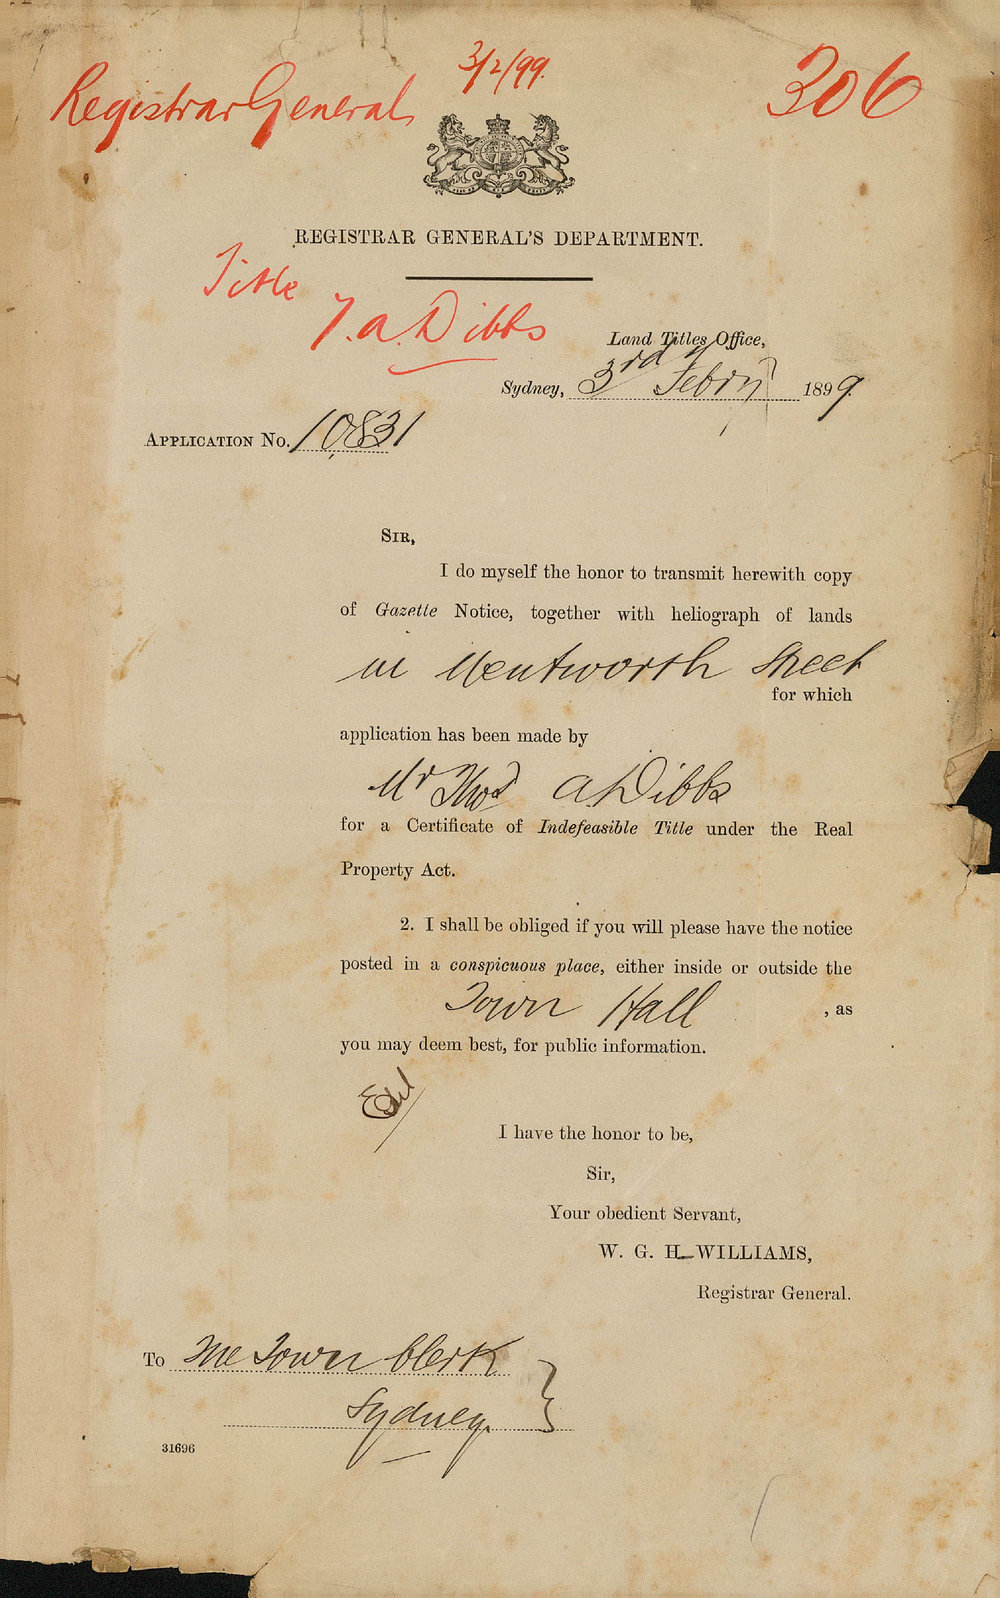 3/2/99.
Registrar General
306
REGISTRAR GENERAL'S DEPARTMENT.
Title
T. A. Dibbs
Land Titles Office,
Sydney, 3rd Febry 1899.
APPLICATION No. 10,831
SIR,
I do myself the honor to transmit herewith copy
of Gazette Notice, together with heliograph of lands
in Wentworth Street
for which
application has been made by
Mr Thos A. Dibbs
for a Certificate of Indefeasible Title under the Real
Property Act.
2. I shall be obliged if you will please have the notice
posted in a conspicuous place, either inside or outside the
Town Hall , as
you may deem best, for public information.
I have the honor to be,
Sir,
Your obedient Servant,
W. G. H. WILLIAMS,
Registrar General.
To The Town Clerk
Sydney.
31696